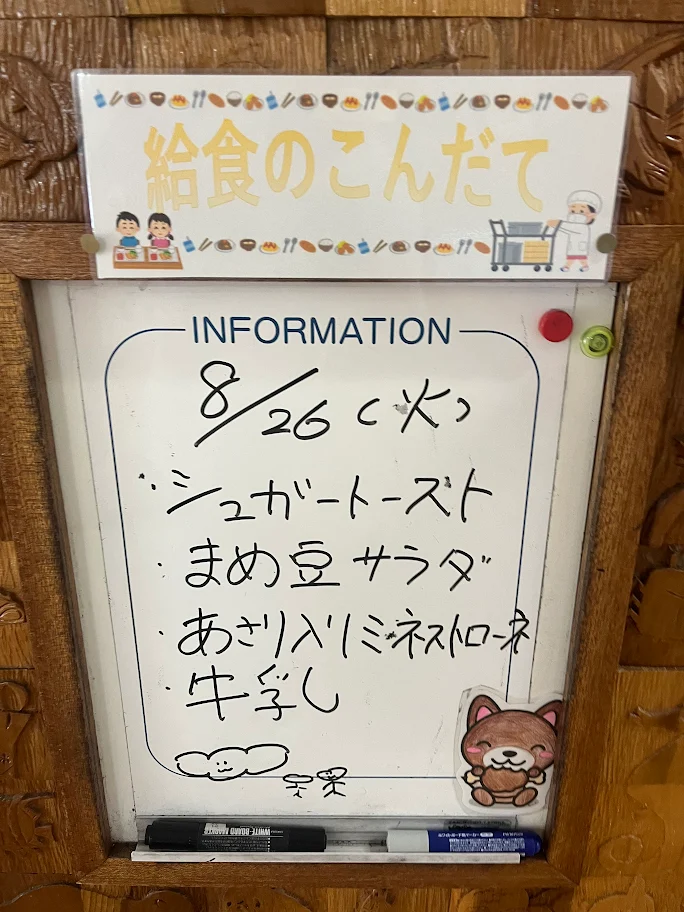 給食のこんだて
INFORMATION
8/26(火)
・シュガートースト
・まめ豆サラダ
・あさり入りミネストローネ
・牛乳
WHITE BOARD MARKER